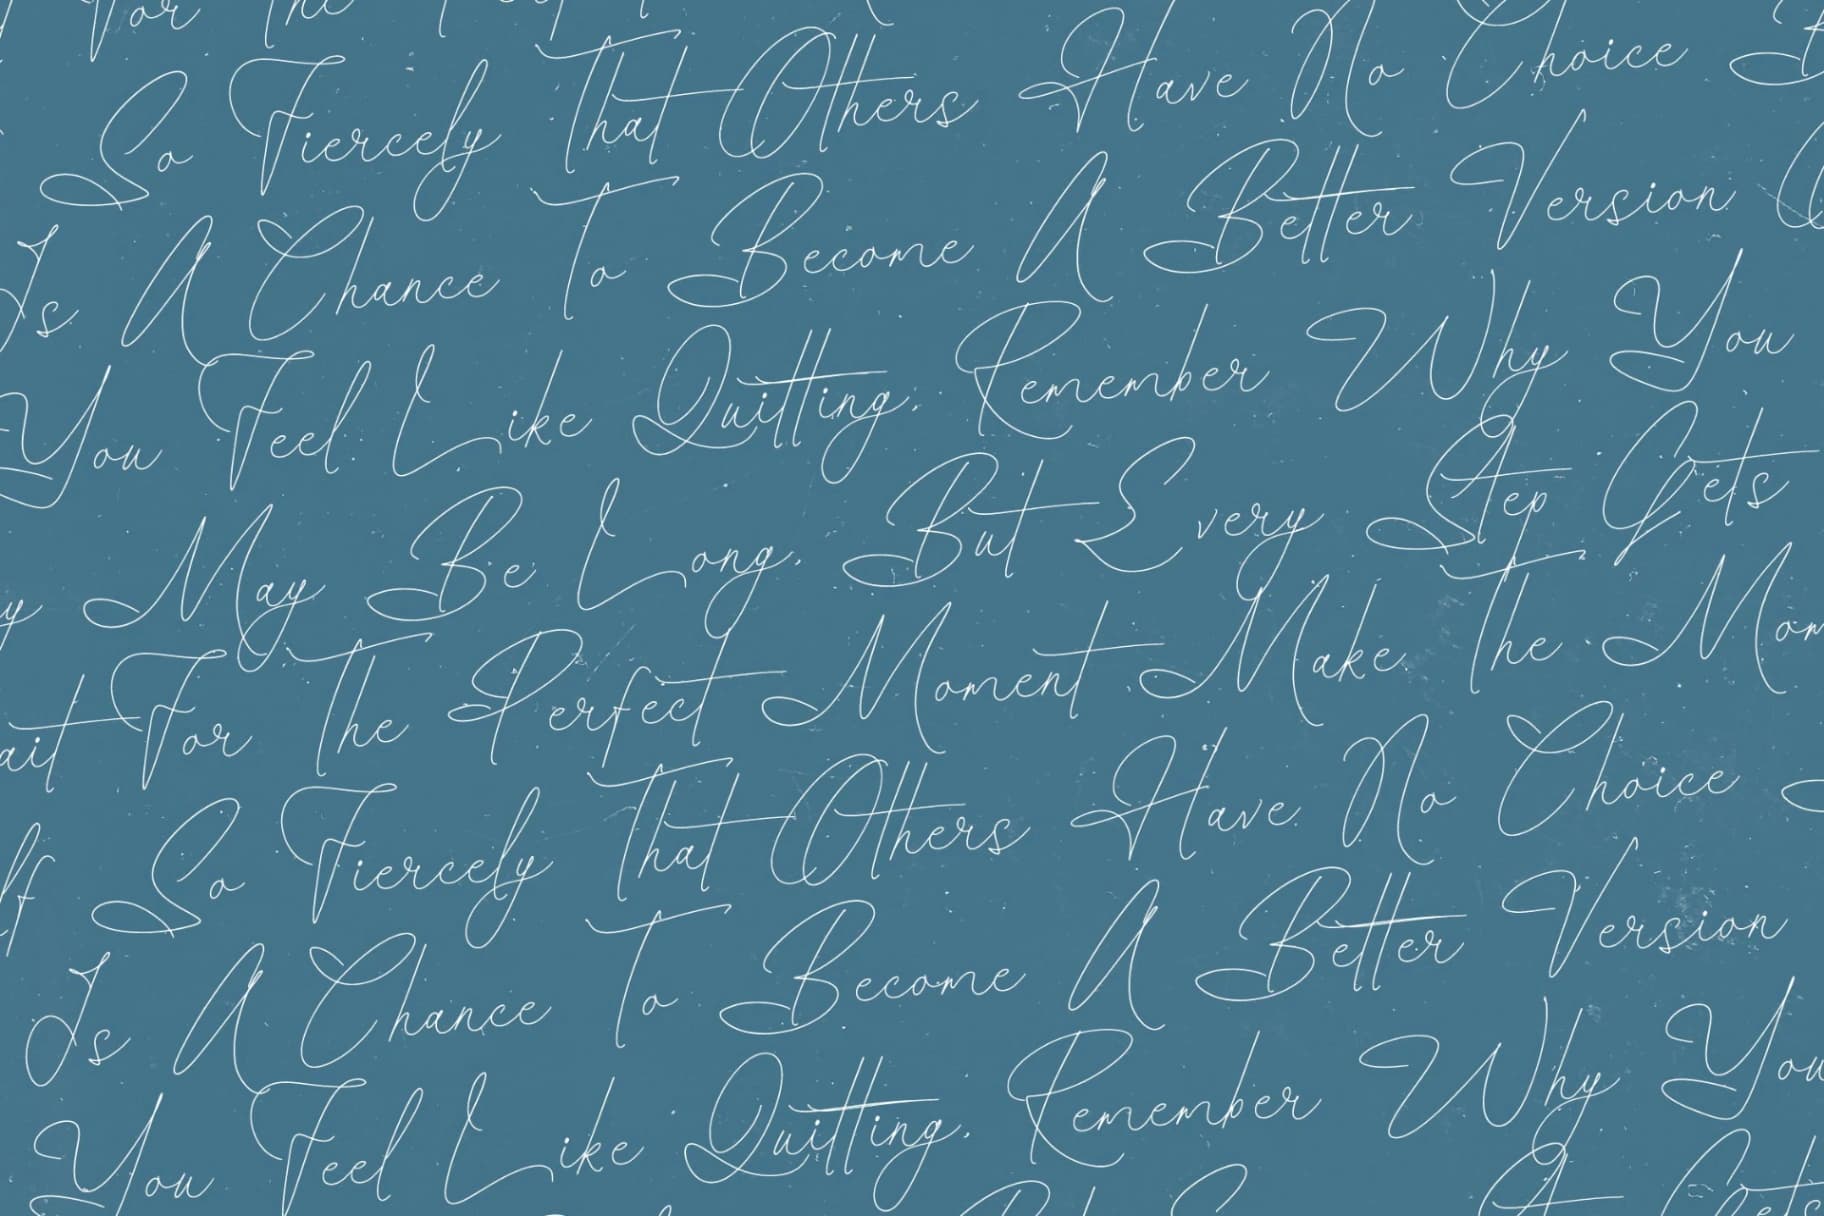 For The
So Fiercely That Others Have No Choice
Is A Chance To Become A Better Version
You Feel Like Quitting, Remember Why You
May Be Long, But Every Step Gets
ait For The Perfect Moment, Make The Mom
lf So Fiercely That Others Have No Choice
Is A Chance To Become A Better Version
You Feel Like Quitting, Remember Why You